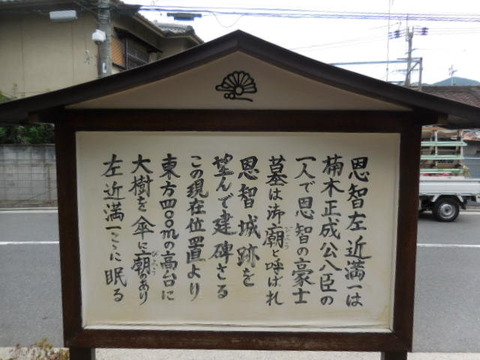 恩智左近満一は
楠木正成公八臣の
一人で恩智の豪士
墓は御廟と呼ばれ
恩智城跡を
望んで建碑さる
この現在位置より
東方四〇〇mの高台に
大樹を傘に廟があり
左近満一こゝに眠る